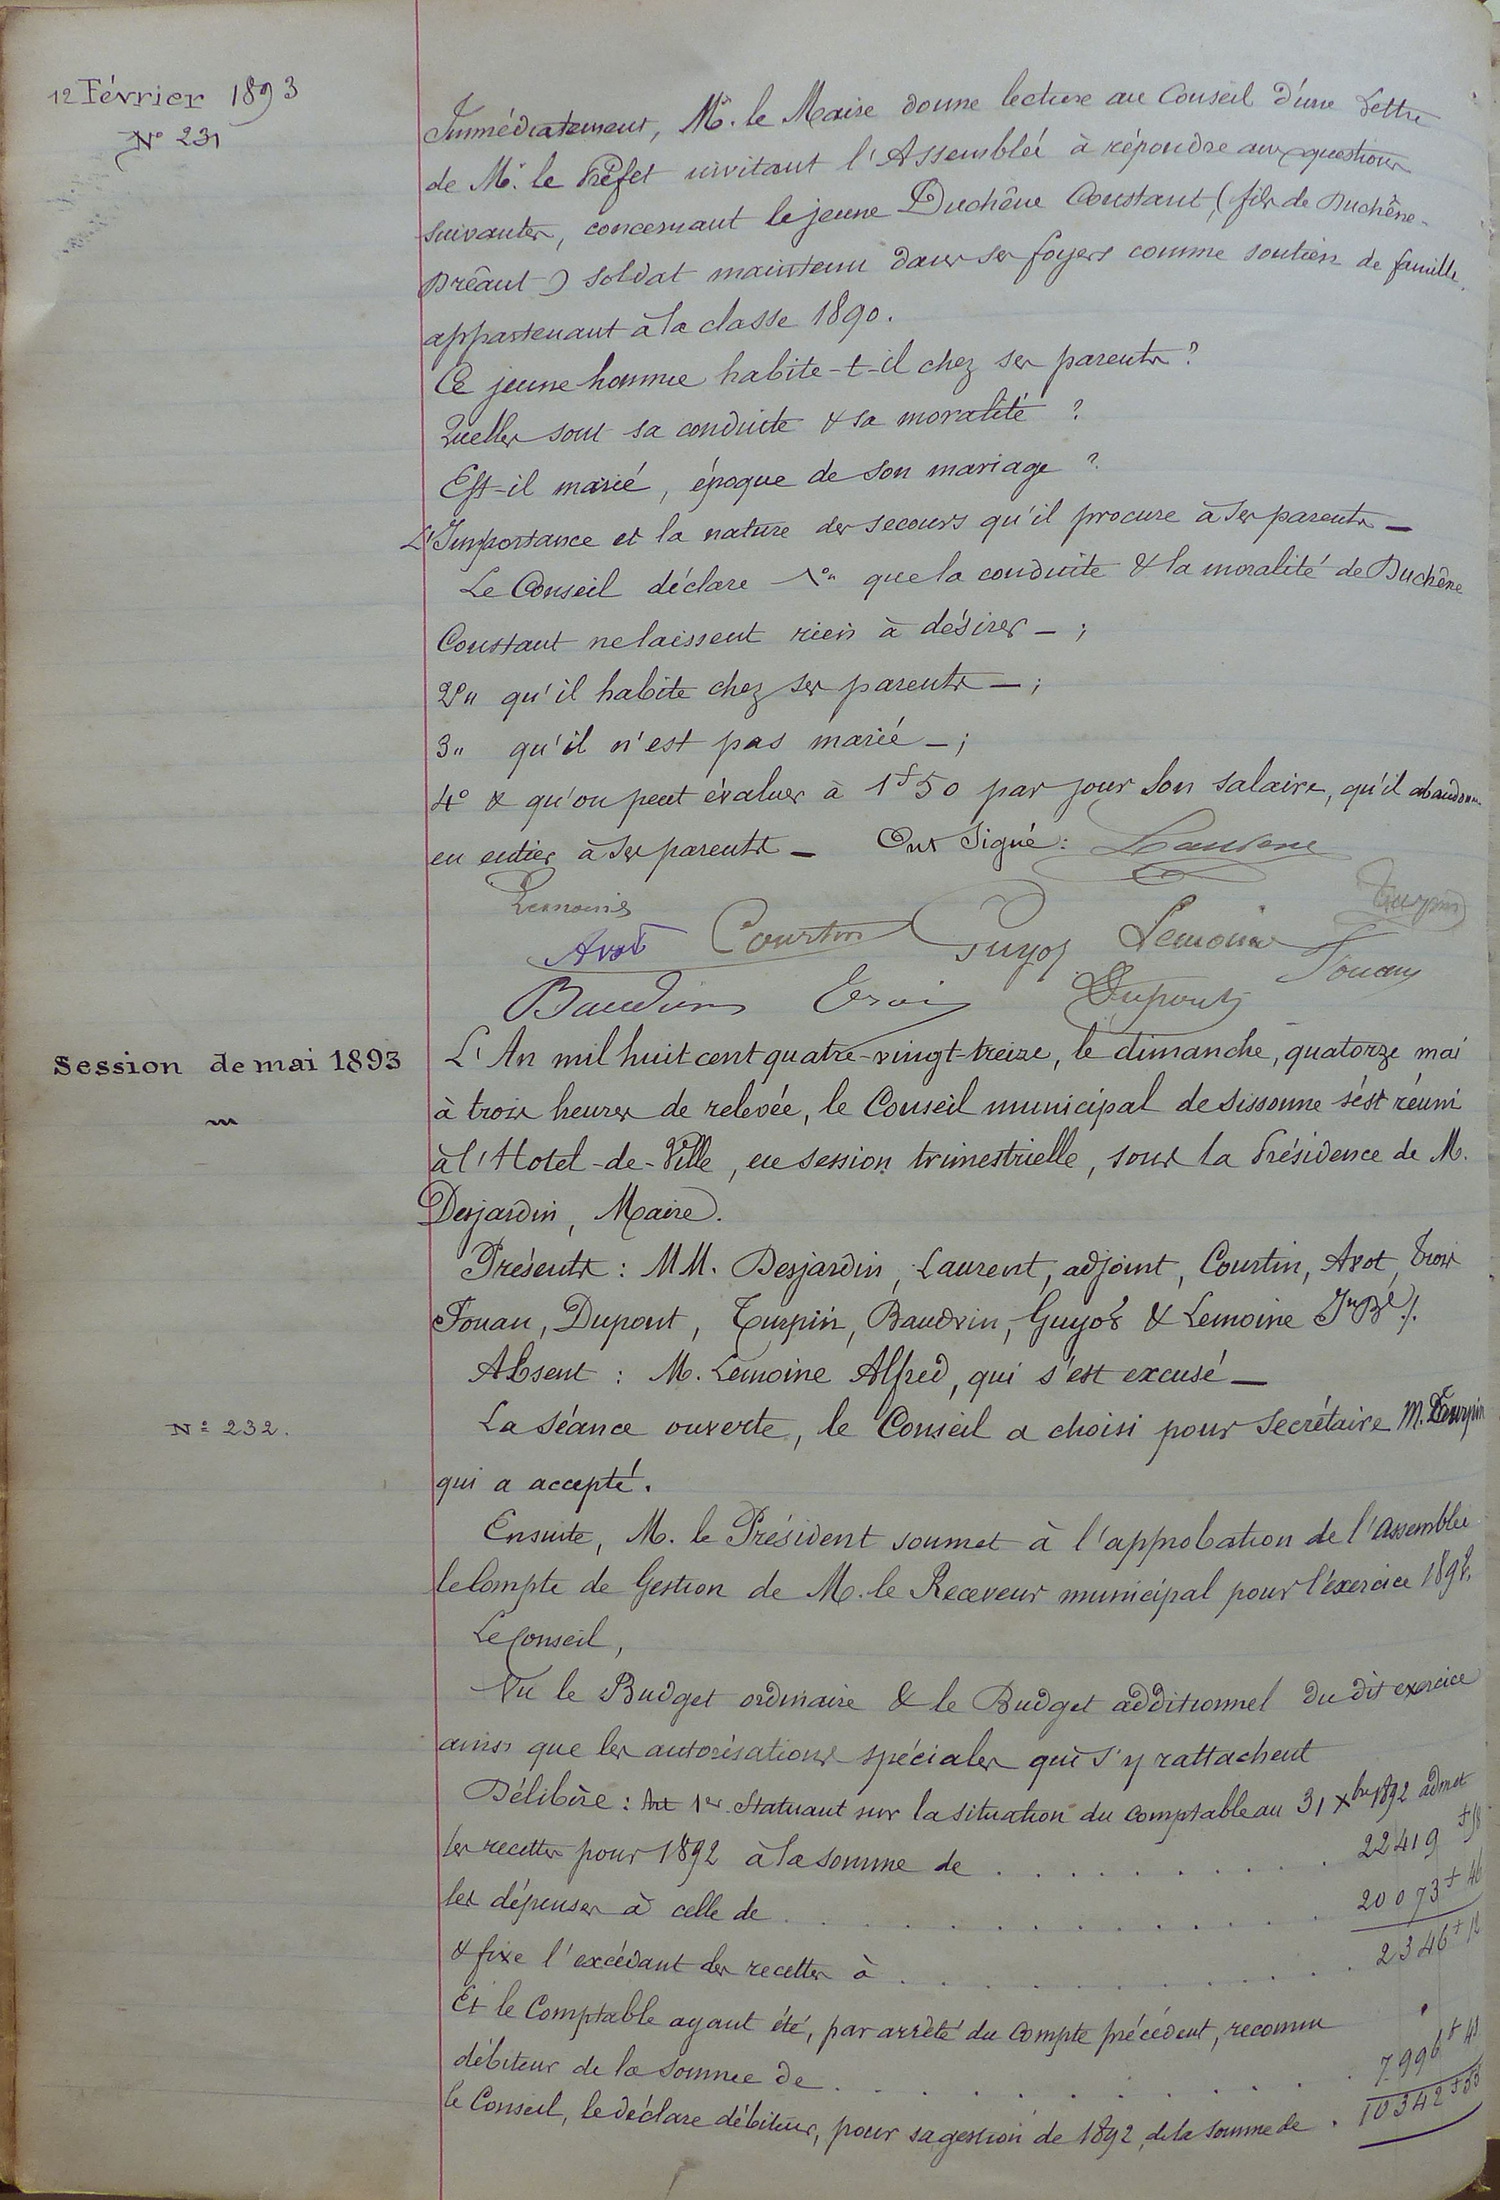 12 Février 1893
N° 231
Immédiatement, Mr. le Maire donne lecture au Conseil d'une Lettre
de Mr. le Préfet invitant l'Assemblée à répondre aux questions
suivantes, concernant le jeune Duchêne Constant, (fils de Duchêne-
Préaut) soldat maintenu dans ses foyers comme soutien de famille,
appartenant à la classe 1890.
Ce jeune homme habite-t-il chez ses parents ?
Quelles sont sa conduite & sa moralité ?
Est-il marié, époque de son mariage ?
L'Importance et la nature des secours qu'il procure à ses parents —
Le Conseil déclare 1° que la conduite & la moralité de Duchêne
Constant ne laissent rien à désirer — ;
2° qu'il habite chez ses parents — ;
3" qu'il n'est pas marié — ;
4° & qu'on peut évaluer à 1f 50 par jour son salaire, qu'il abandonne
en entier à ses parents — Ont Signé :
Lemoine Turpin
Avot Courtin Guyot Lemoine Fouan
Baudvin Dupont
Session de mai 1893
L'An mil huit cent quatre-vingt-treize, le dimanche, quatorze mai
à trois heures de relevée, le Conseil municipal de Sissonne s'est réuni
à l'Hotel-de-Ville, en session trimestrielle, sous la Présidence de M.
Desjardin, Maire.
Présents : MM. Desjardin, Laurent, adjoint, Courtin, Avot, Trois
Fouan, Dupont, Turpin, Baudvin, Guyot & Lemoine
Absent : M. Lemoine Alfred, qui s'est excusé —
N° 232.
La Séance ouverte, le Conseil a choisi pour Secrétaire M. Turpin
qui a accepté.
Ensuite, M. le Président soumet à l'approbation de l'Assemblée
le Compte de Gestion de M. le Receveur municipal pour l'exercice 1892.
Le Conseil,
Vu le Budget ordinaire & le Budget additionnel du dit exercice
ainsi que les autorisations spéciales qui s'y rattachent
Délibère : Art 1er. Statuant sur la situation du comptable au 31 Xbre 1892 admet
les recettes pour 1892 à la somme de . . . . . . . . . . 22419 f 58
les dépenses à celle de . . . . . . . . . . . . 20073 f 46
& fixe l'excédant des recettes à . . . . . . . . . . 2346 f 12
Et le Comptable ayant été, par arrêté du Compte précédent, reconnu
débiteur de la somme de . . . . . . . . . . 7996 f 41
le Conseil, le déclare débiteur, pour sa gestion de 1892, de la somme de . 10342 f 53